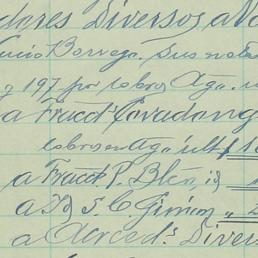 dores Diversos a Va
cio Borrego. Sus nota
y 197 por cobros Ago.
a Fracd. Covadong
cobros en Ago. ult.
a Fracd. P. Blco, id
a Id S. C. Gimón "
a Acreeds. Divers